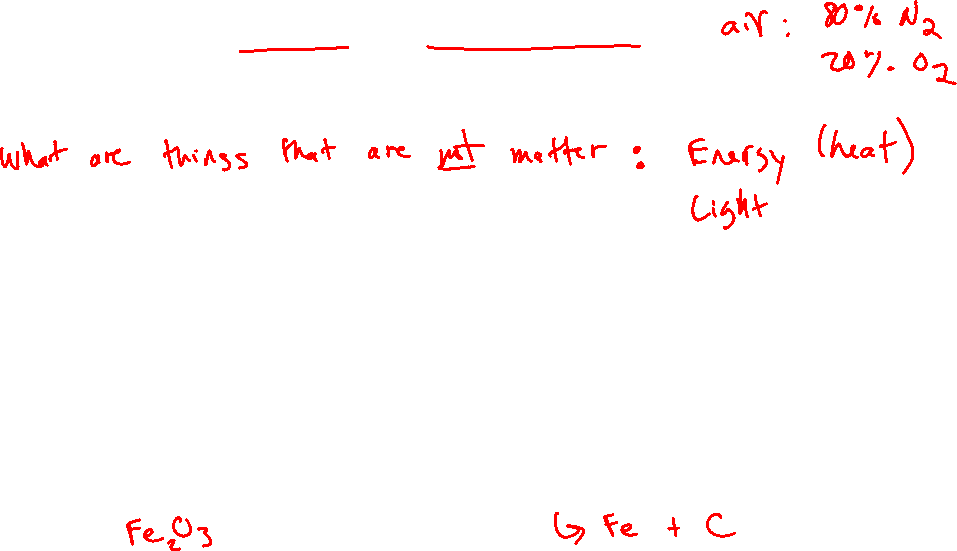 air: 80% N2
20% O2
What are things that are not matter: Energy (heat)
Light
Fe2O3
↳ Fe + C